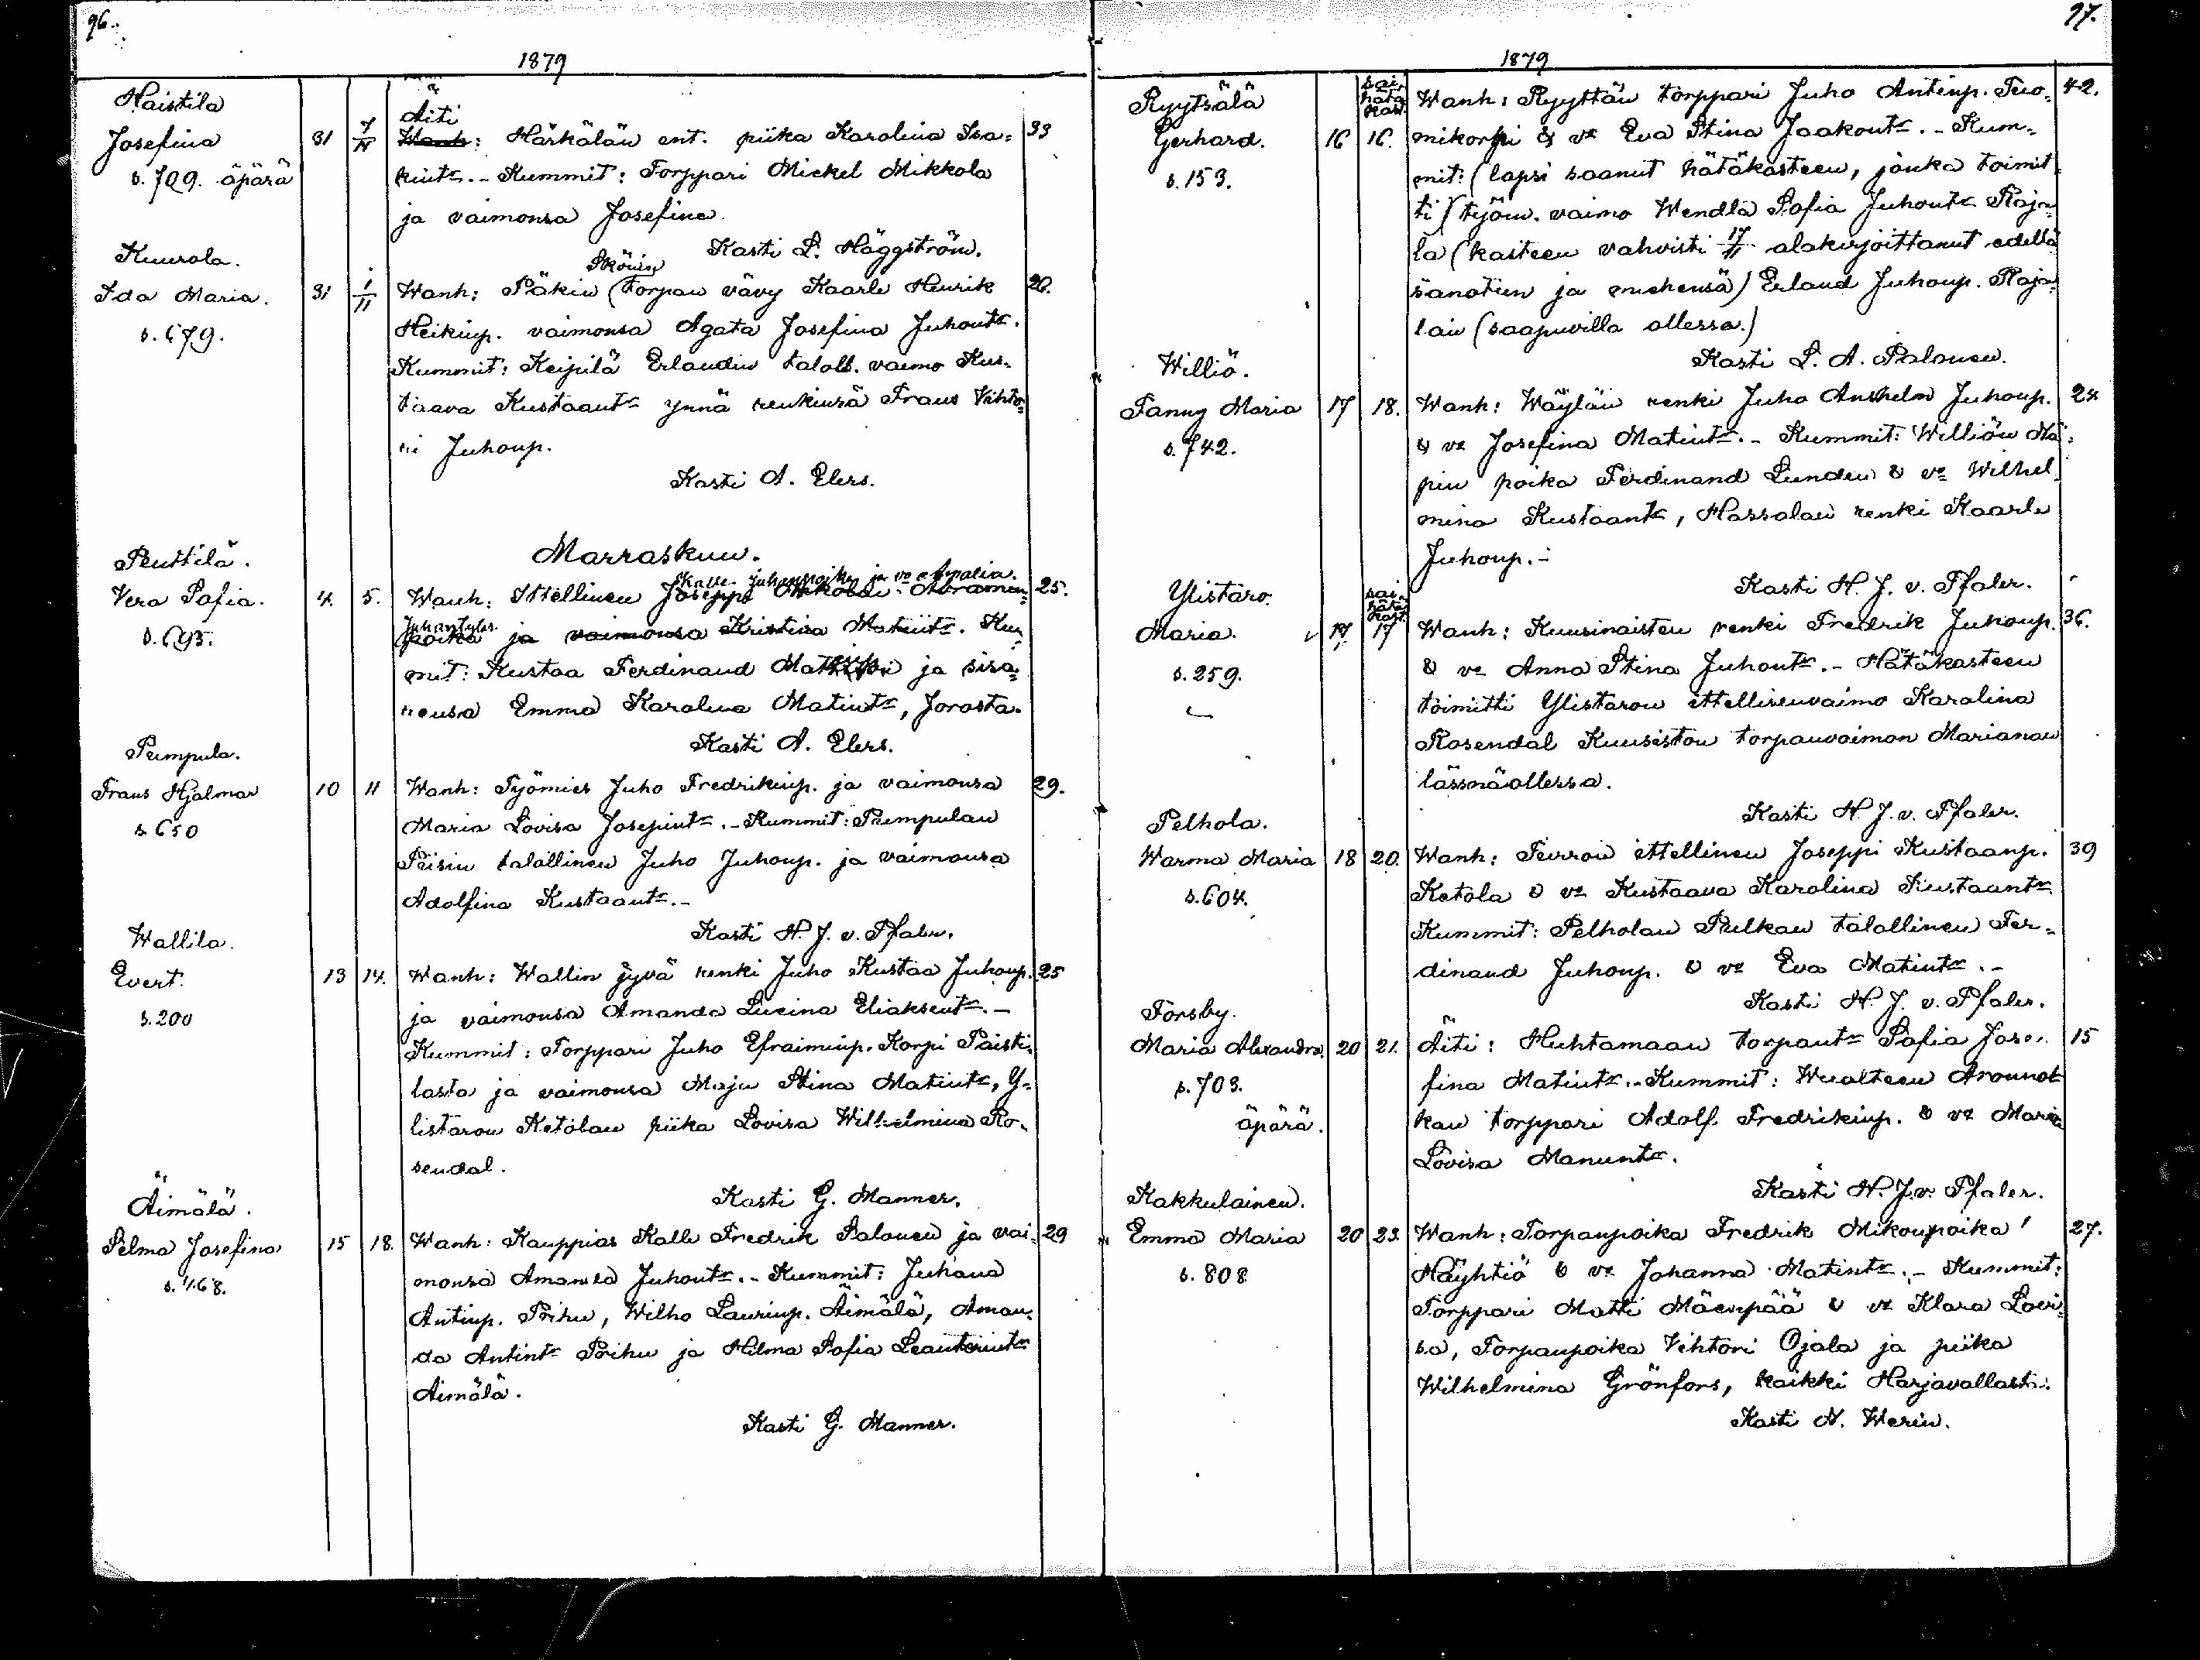 96.
1879
Haistila
Josefina 31 7/IV
s. 709. äpärä
Äiti
Wanh: Härkälän ent. piika Karolina Isa= 33
kint:r.- Kummit: Torppari Mickel Mikkola
ja vaimonsa Josefina.
Kasti L. Häggström.
Kuurola.
Ida Maria. 31 1/11
s. 679.
Sköiin
Wanh: Päkin (Torpan vävy Kaarle Henrik 26.
Heikinp. vaimonsa Agata Josefina Juhont:r.
Kummit: Keijilä Erlandin taloll. vaimo Kus=
taava Kustaant:r ynnä renkinsä Frans Vihto=
ri Juhonp.
Kasti A. Elers.
Marraskuu.
Penttilä.
Vera Sofia. 4. 5.
s. 693.
Kalle Juhanpoika ja vo Amalia
Wanh: Ittellinen Joseppi Abramin= 25.
Juhantytär
poika ja vaimonsa Kristina Matint:r. Kum=
mit: Kustaa Ferdinand ja sisa=
rensa Emma Karolina Matint:r, Jorosta.
Kasti A. Elers.
Pumpula.
Frans Hjalmar 10 11
s. 650
Wanh: Työmies Juho Fredrikinp. ja vaimonsa 29.
Maria Lovisa Josepint:r.- Kummit: Pumpulan
Piisin talollinen Juho Juhonp. ja vaimonsa
Adolfina Kustaant:r.-
Kasti H. J. v. Pfaler.
Wallila.
Evert. 13 14.
s. 200
Wanh: Wallin jyvä renki Juho Kustaa Juhonp. 25
ja vaimonsa Amanda Lucina Eliaksent:r.-
Kummit: Torppari Juho Efraiminp. Korpi Paisti=
lasta ja vaimonsa Maju Stina Matint:r, Y=
listaron Ketolan piika Lovisa Wilhelmina Ro=
sendal.
Kasti G. Manner.
Äimälä.
Selma Josefina 15 18.
s. 468.
Wanh: Kauppias Kalle Fredrik Salonen ja vai= 29
monsa Amanda Juhont:r.- Kummit: Juhana
Antinp. Prihu, Wilho Laurinp. Äimälä, Aman=
da Antint:r Prihu ja Hilma Sofia Leanterint:r
Äimälä.
Kasti G. Manner.
97.
1879
Ryytsälä
Gerhard. 16 16.
s. 153.
sai
hätä
kast.
Wanh: Ryyttän torppari Juho Antinp. Tuo= 42.
mikorpi & vo Eva Stina Jaakont:r.- Kum=
mit: (lapsi saanut hätäkasteen, jonka toimit
ti) työm. vaimo Wendla Sofia Juhont:r Raja=
la (kasteen vahvisti 17/11 alakirjoittanut edellä
sanotun ja miehensä) Erland Juhonp. Raja=
lan (saapuvilla ollessa.)
Kasti L. A. Salonen.
Williö.
Fanny Maria 17 18.
s. 742.
Wanh: Wäylän renki Juho Anshelm Juhonp. 24
& vo Josefina Matint:r.- Kummit: Williön Nä=
pin poika Ferdinand Lunden & vo Wilhel=
mina Kustaant:r, Hassalan renki Kaarle
Juhonp.-
Kasti H. J. v. Pfaler.
Ylistaro.
Maria. 17 17
s. 259.
sai
hätä
kast.
Wanh: Kuusinaisten renki Fredrik Juhonp. 36.
& vo Anna Stina Juhont:r.- Hätäkasteen
toimitti Ylistaron ittellisenvaimo Karolina
Rosendal Kuusiston torpanvaimon Marianan
lässnäollessa.
Kasti H. J. v. Pfaler.
Pelhola.
Warma Maria 18 20.
s. 604.
Wanh: Teirron ittellinen Joseppi Kustaanp. 39
Ketola & vo Kustaava Karolina Kustaant:r
Kummit: Pelholan Pulkan talollinen Fer=
dinand Juhonp. & vo Eva Matint:r.-
Kasti H. J. v. Pfaler.
Forsby.
Maria Alexandra 20 21.
s. 703.
äpärä.
Äiti: Huhtamaan torpant:r Sofia Jose= 15
fina Matint:r.- Kummit: Wualteen Arounot
kan torppari Adolf Fredrikinp. & vo Maria
Lovisa Manunt:r.
Kasti H. J. v. Pfaler.
Kakkulainen.
Emma Maria 20 23.
s. 808
Wanh: Torpanpoika Fredrik Mikonpoika 27.
Häyhtiö & vo Johanna Matint:r.- Kummit:
Torppari Matti Mäenpää & vo Klara Lovi=
sa, Torpanpoika Vihtori Ojala ja piika
Wilhelmina Grönfors, kaikki Harjavallasta.
Kasti N. Werin.